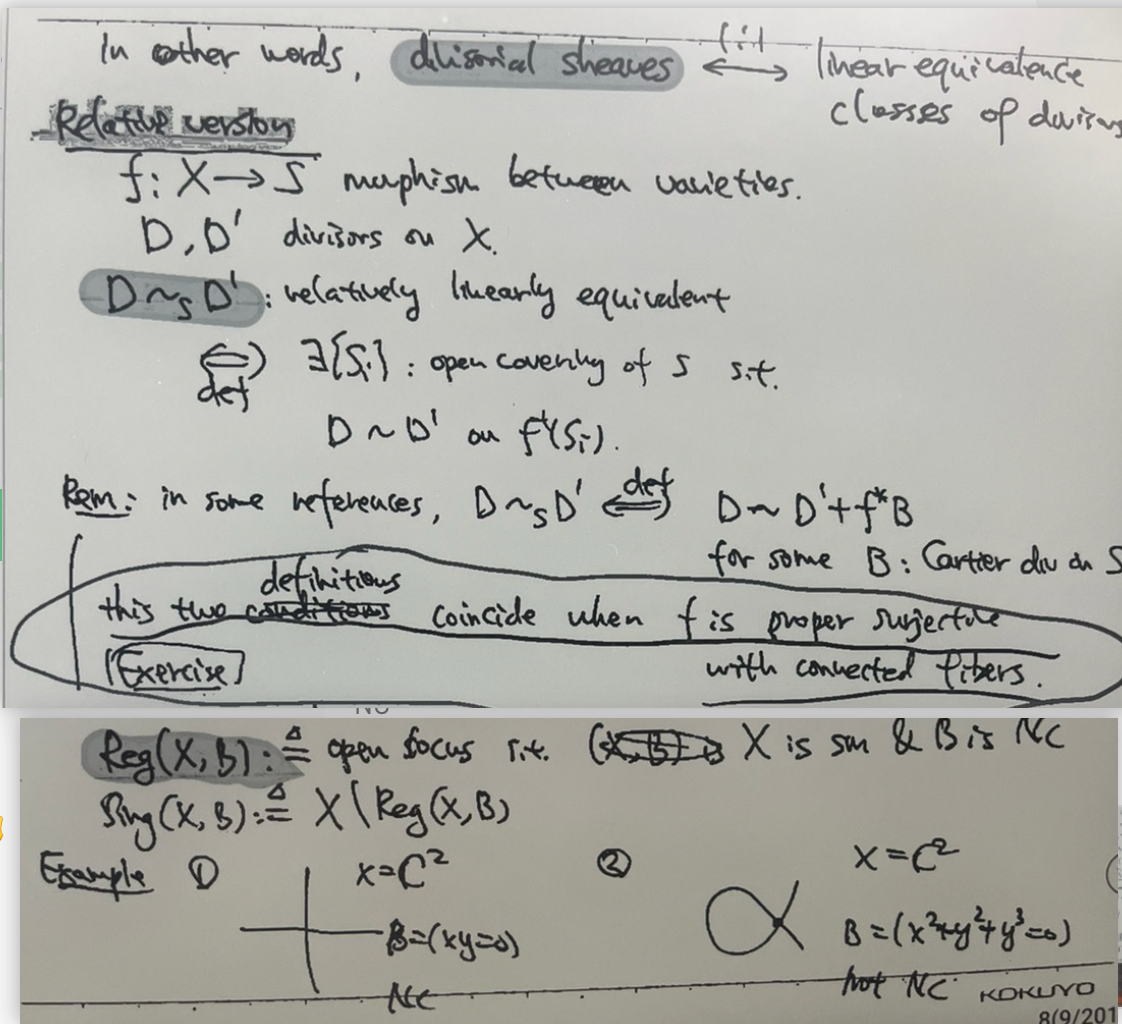 In other words, divisorial sheaves ⟷ linear equivalence
1:1
classes of divisors
Relative version
f: X → S morphism between varieties.
D, D' divisors on X.
D ~_S D' : relatively linearly equivalent
⟺ ∃{S_i} : open covering of S s.t.
def
D ~ D' on f^{-1}(S_i).
Rem: in some references, D ~_S D' ⟺ def D ~ D' + f^*B
for some B : Cartier div on S
definitions
this two conditions coincide when f is proper surjective
(Exercise) with connected fibers.
Reg(X, B) :≜ open locus s.t. (X, B) is X is sm & B is NC
Sing(X, B) :≜ X \ Reg(X, B)
Example ① X = C^2 ② X = C^2
B = (xy=0) B = (x^2+y^2+y^3=0)
NC not NC
KOKUYO
8/9/201